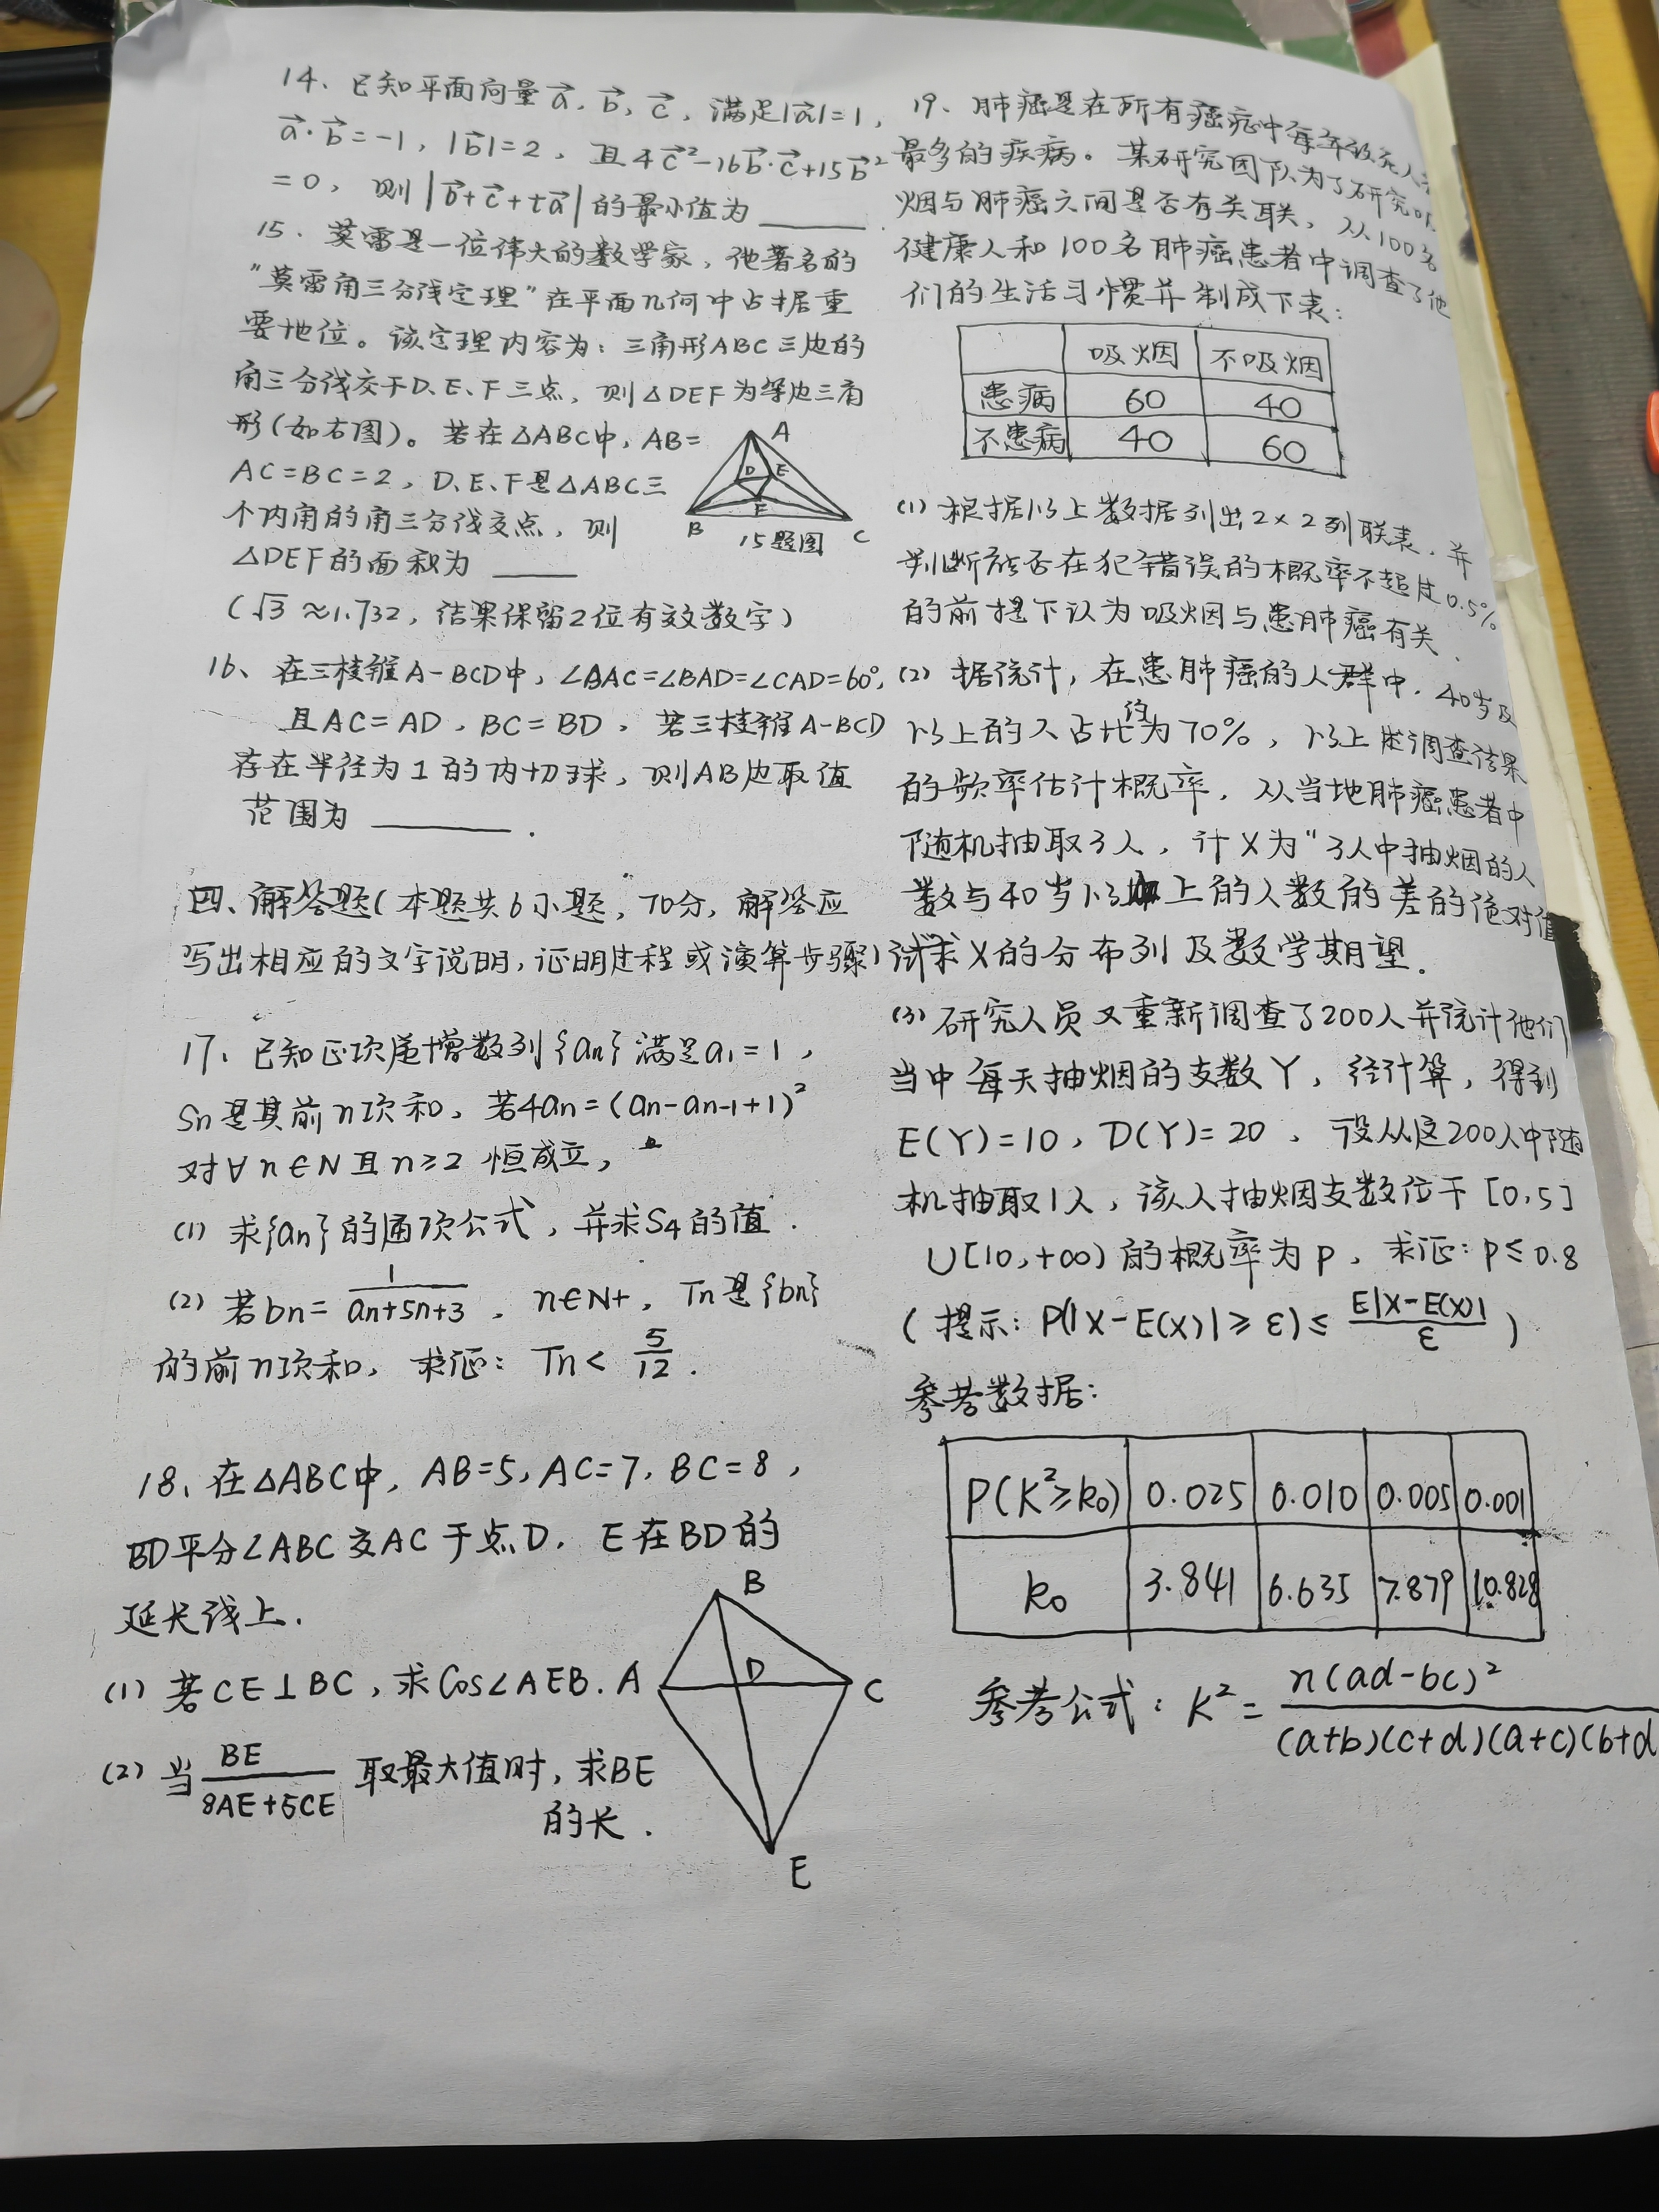 14、已知平面向量a⃗, b⃗, c⃗, 满足|a⃗|=1,
a⃗·b⃗=-1, |b⃗|=2, 且4c⃗²-16b⃗·c⃗+15b⃗²
=0, 则|b⃗+c⃗+ta⃗|的最小值为 ______.
15. 莫雷是一位伟大的数学家, 他著名的
"莫雷角三分线定理"在平面几何中占据重
要地位。该定理内容为: 三角形ABC三边的
角三分线交于D、E、F三点, 则△DEF为等边三角
形(如右图)。若在△ABC中, AB=
AC=BC=2, D、E、F是△ABC三
个内角的角三分线交点, 则
△DEF的面积为 ____
(√3≈1.732, 结果保留2位有效数字)
A
D
E
F
B
C
15题图
16、在三棱锥A-BCD中, ∠BAC=∠BAD=∠CAD=60°,
且AC=AD, BC=BD, 若三棱锥A-BCD
存在半径为1的内切球, 则AB边取值
范围为 ______.
四、解答题(本题共6小题, 70分, 解答应
写出相应的文字说明, 证明过程或演算步骤)
17、已知正项递增数列{an}满足a₁=1,
Sn是其前n项和, 若4an=(an-an-1+1)²
对∀n∈N且n≥2 恒成立,
(1) 求{an}的通项公式, 并求S4的值.
(2) 若bn=1/(an+5n+3), n∈N+, Tn是{bn}
的前n项和, 求证: Tn<5/12.
18、在△ABC中, AB=5, AC=7, BC=8,
BD平分∠ABC交AC于点D, E在BD的
延长线上.
(1) 若CE⊥BC, 求Cos∠AEB.
(2) 当BE/(8AE+5CE)取最大值时, 求BE
的长.
B
A
D
C
E
19、肺癌是在所有癌症中每年
最多的疾病。某研究团队为了研究
烟与肺癌之间是否有关联, 从100名
健康人和100名肺癌患者中调查了他
们的生活习惯并制成下表:
吸烟 不吸烟
患病 60 40
不患病 40 60
(1) 根据以上数据列出2×2列联表, 并
判断能否在犯错误的概率不超过0.5%
的前提下认为吸烟与患肺癌有关.
(2) 据统计, 在患肺癌的人群中, 40岁及
以上的人占比约为70%, 以上述调查结果
的频率估计概率, 从当地肺癌患者中
随机抽取3人, 计X为"3人中抽烟的人
数与40岁以上的人数的差的绝对值
试求X的分布列及数学期望.
(3) 研究人员又重新调查了200人并统计他们
当中每天抽烟的支数Y, 经计算, 得到
E(Y)=10, D(Y)=20, 设从这200人中随
机抽取1人, 该人抽烟支数位于[0,5]
∪[10,+∞)的概率为p, 求证: p≤0.8
(提示: P(|X-E(X)|≥ε)≤E|X-E(X)|/ε)
参考数据:
P(K²≥k₀) 0.025 0.010 0.005 0.001
k₀ 3.841 6.635 7.879 10.828
参考公式: K²=n(ad-bc)²/(a+b)(c+d)(a+c)(b+d